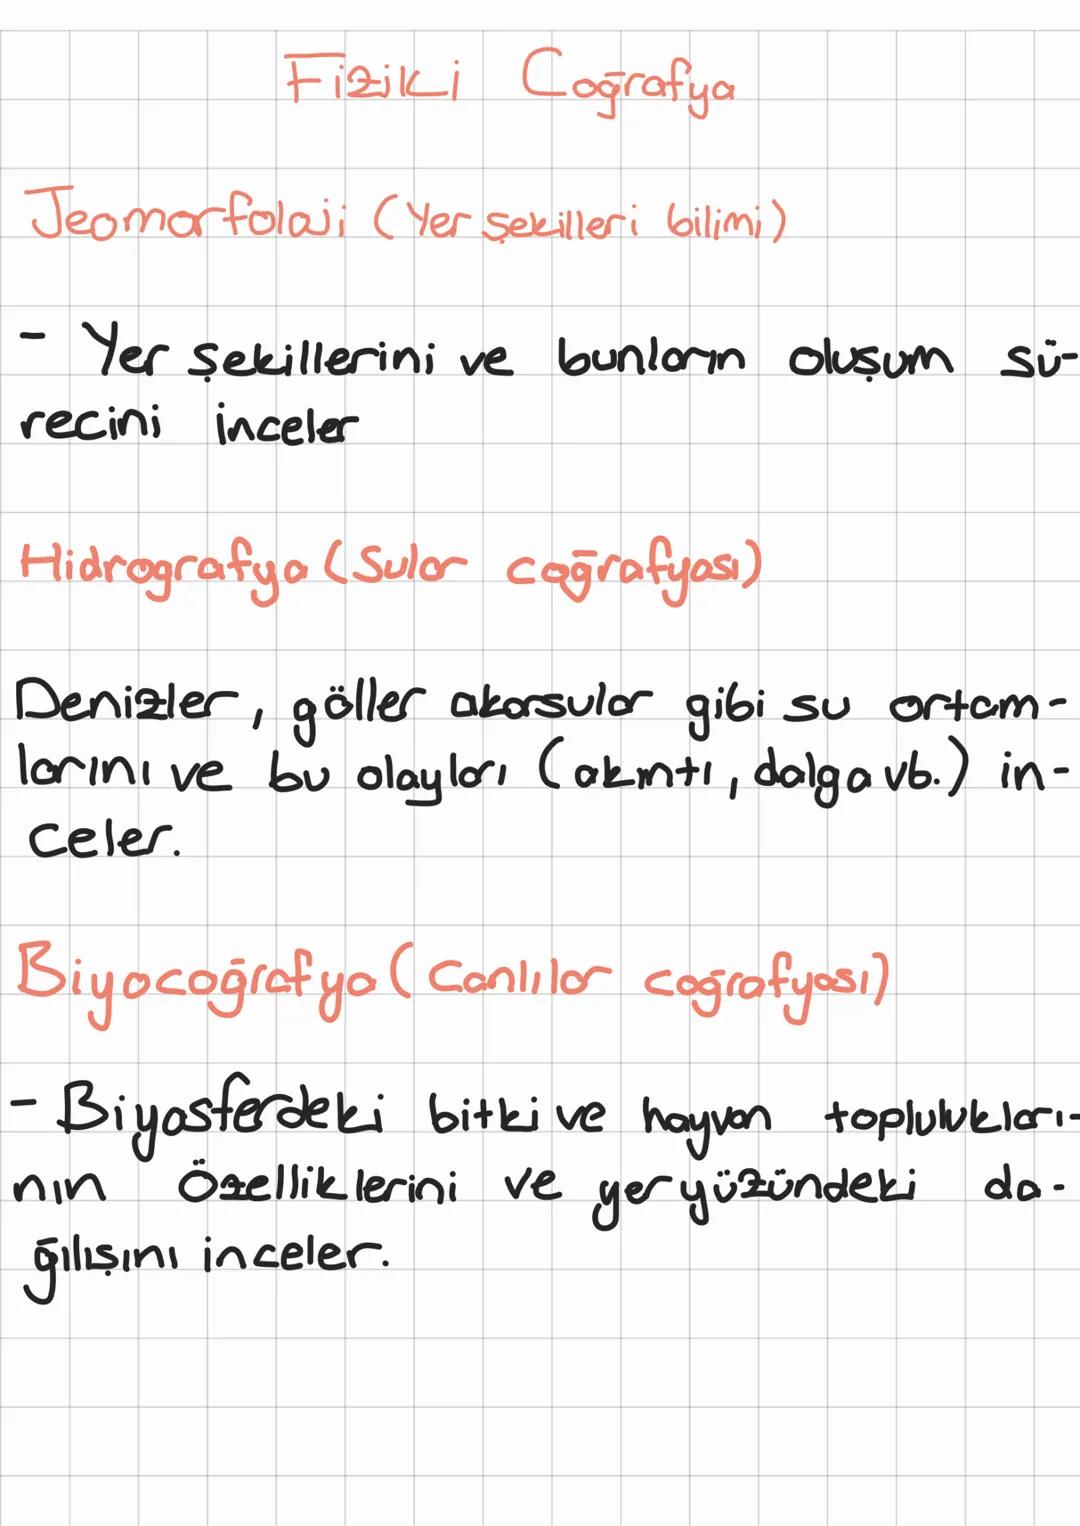 Fiziki Coğrafya
Jeomorfoloji (Yer şekilleri bilimi)
- Yer şekillerini ve bunların oluşum sü-
recini inceler
Hidrografya (Sular coğrafyası)
Denizler, göller akarsular gibi su ortam-
larını ve bu olayları (akıntı, dalga vb.) in-
celer.
Biyocoğrafya (Canlılar coğrafyası)
- Biyosferdeki bitki ve hayvan toplulukları-
nın Özelliklerini ve yer yüzündeki da-
ğılışını inceler.